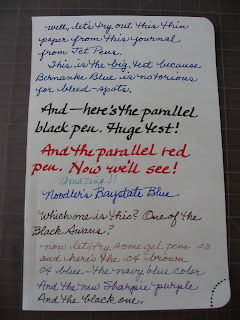 Well, let's try out this thin
paper from this journal
from Jet Pens.
This is the big test because
Bernanke Blue is notorious
for bleed-spots.
And—here's the parallel
black pen. Huge test!
And the parallel red
pen. Now we'll see!
Amazing!!
Noodler's Baystate Blue
Which one is this? One of the
Black Swans?
now let's try some gel pens 03
and here's the .04 brown
04 blue-the navy blue color
And the new Sharpie purple
And the black one.